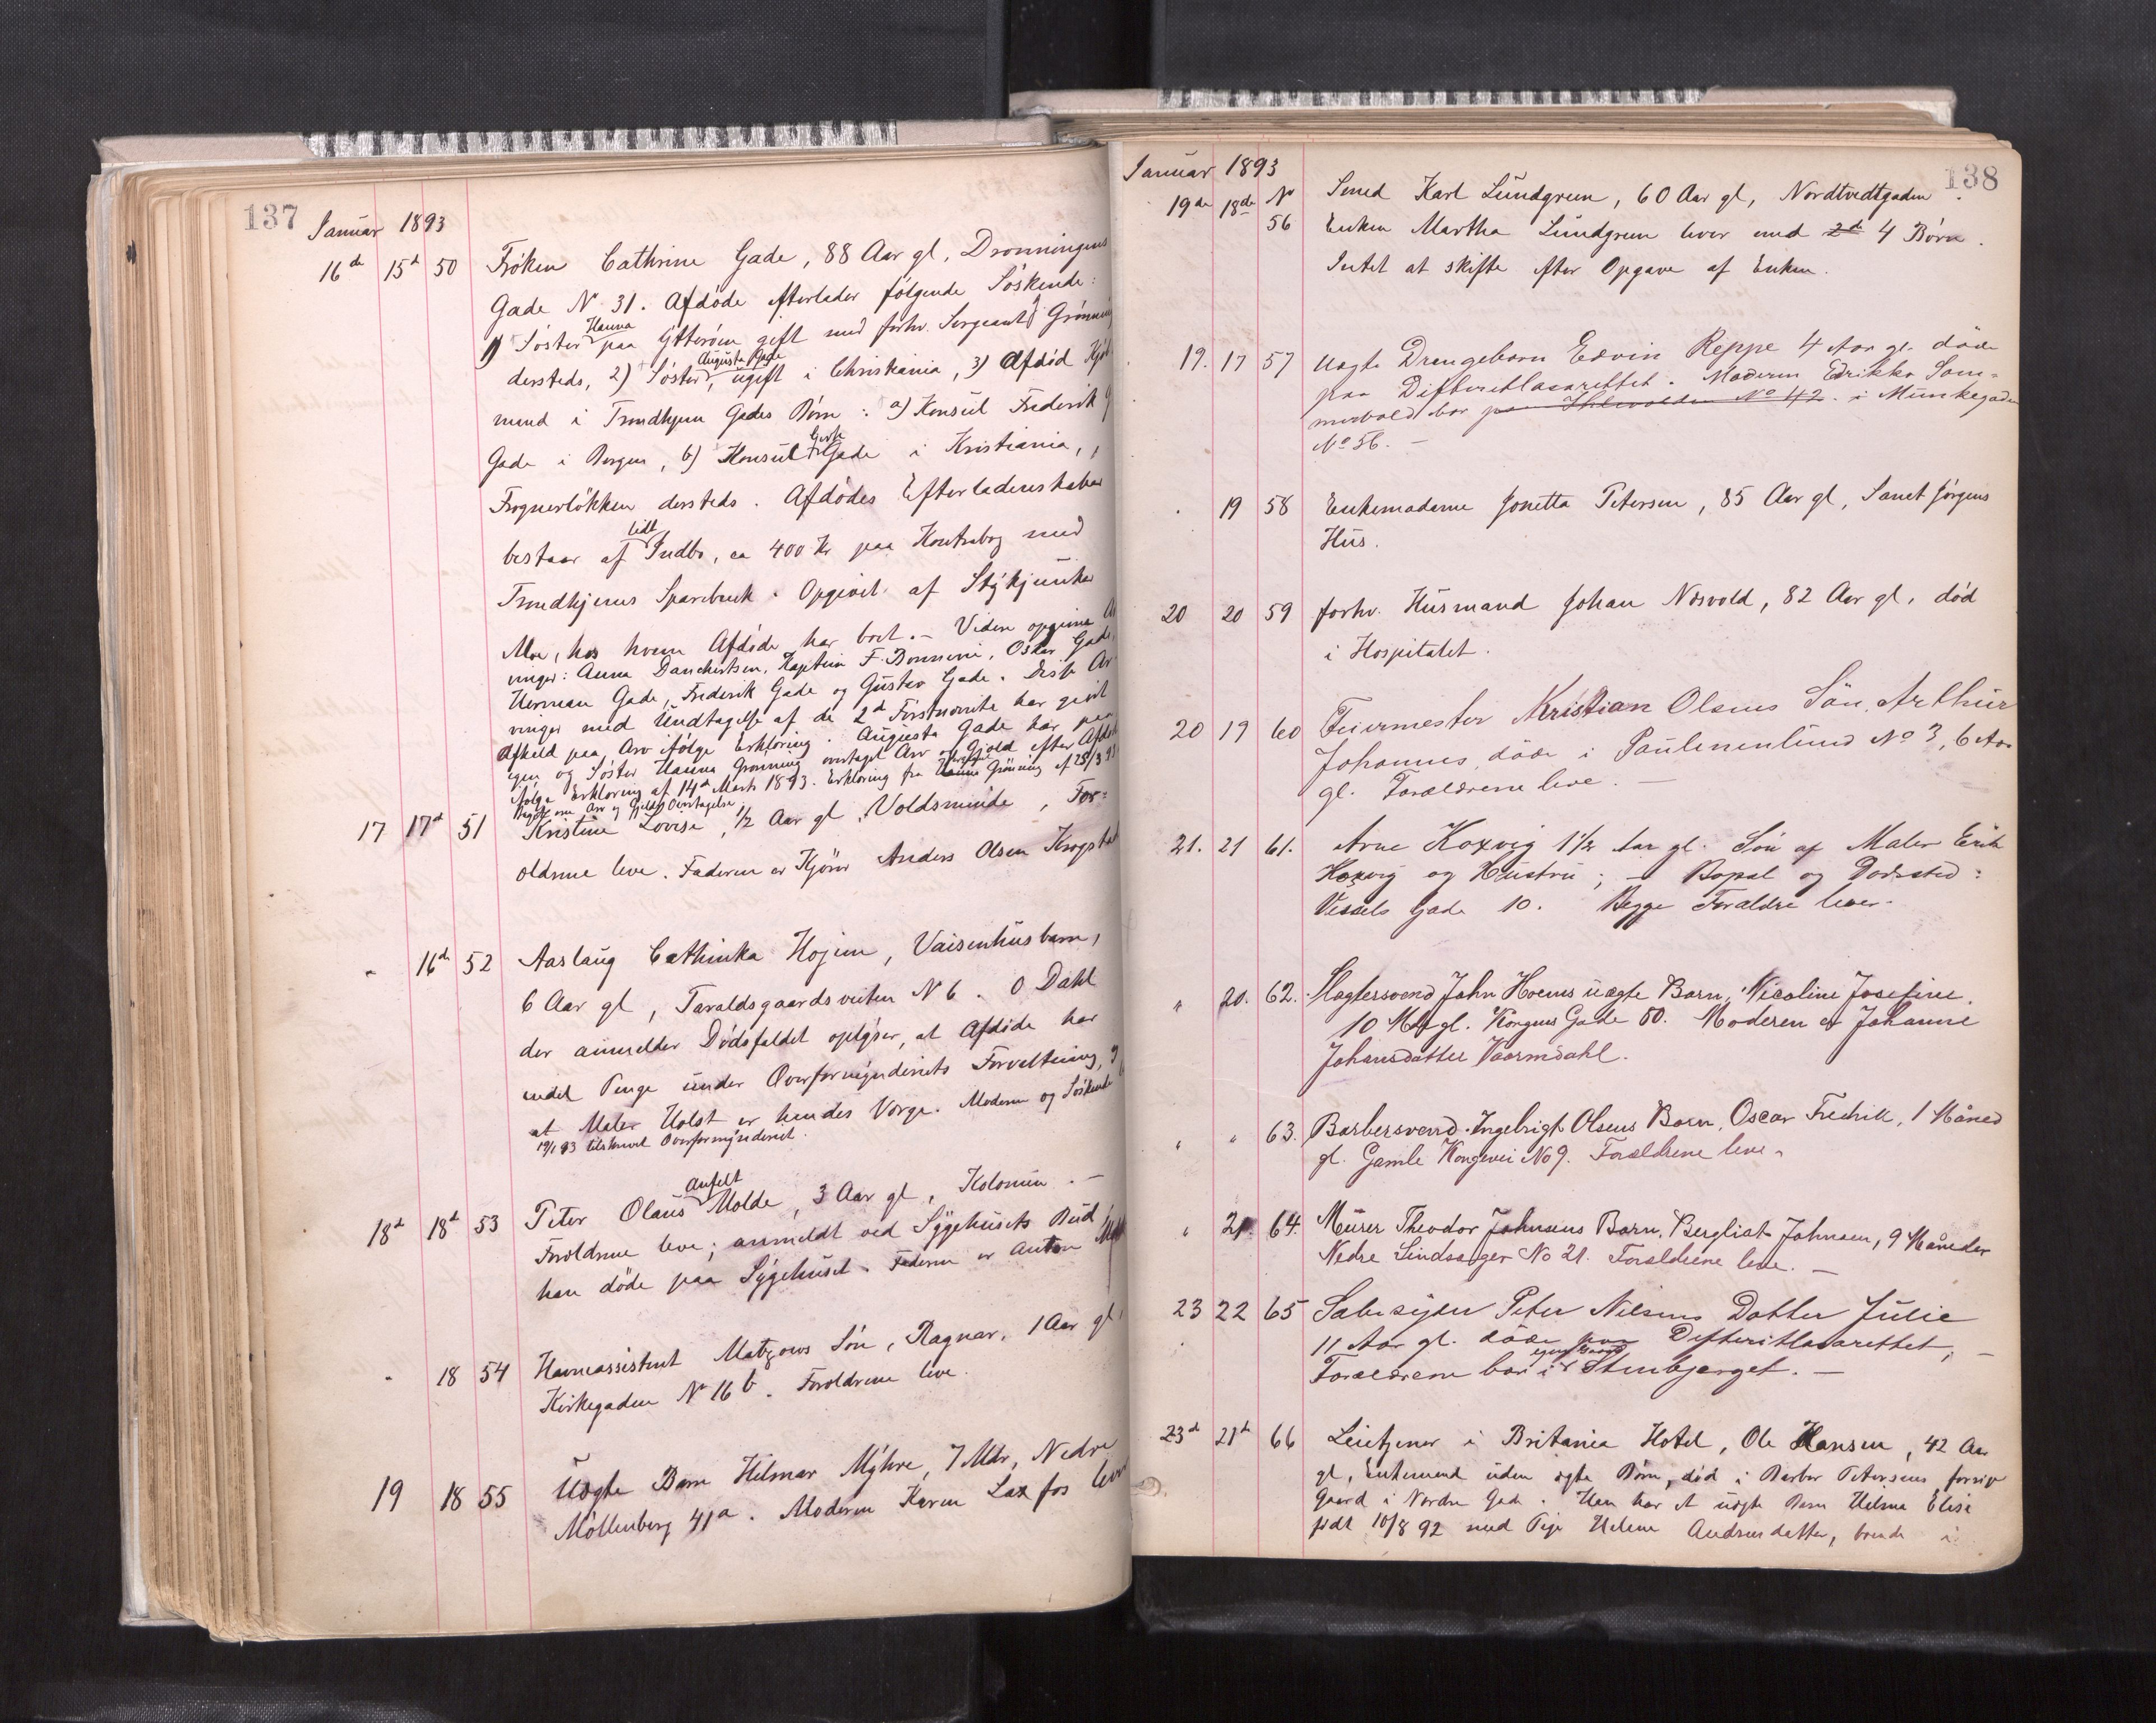 137
Januar 1893
16de 15d 50 Fröken Cathrine Gade, 88 Aar gl, Dronningens
Gade No 31. Afdöde efterlader fölgende Söskende:
1) Söster Hanna paa Ytteröen gift med forhv. Sergeant Grönning
dersteds, 2) Söster, Augusta Gade ugift i Christiania, 3) Afdöd Kjöb
mand i Trondhjem Gades Börn: a) Konsul Frederik G
Gade i Bergen, b) Konsul Gade i Kristiania,
Frognerlökken dersteds. Afdödes Efterladenskaber
bestaar af lidt Indbo, ca 400 Kr paa Kontrabog med
Trondhjems Sparebank. Opgivet af
Moe, hos hvem Afdöde har boet. - Videre opgives Ar
vinger: Anna Danchertsen, Kaptein F. Bonnevie, Oskar Gade,
Herman Gade, Frederik Gade og Gustav Gade. Disse Ar
vinger med Undtagelse af de 2d Förstnævnte har givet
Afkald paa Arv ifölge Erklæring. Augusta Gade har paa
egne og Söster Hanna Grønning overtaget Arv og Gjæld efter Afdöde
ifölge Erklæring af 14d Marts 1893. Erklæring fra Hanna Grönning af 25/3 93
om Arv og Gjælds Overtagelse
17 17d 51 Kristine Lovise, 1/2 Aar gl, Voldsminde, For=
ældrene leve. Faderen er Kjörer Anders Olsen Krogstad
" 16de 52 Aaslaug Cathinka Hojem, Vaisenhusbarn,
6 Aar gl, Taraldsgaardsveiten N 6. O Dahl
der anmelder Dödsfaldet oplyser, at Afdöde har
endel Penge under Overformynderiets Forvaltning, og
at Maler Holst er hendes Værge. Moderen og Söskende
19/1 93 tilskrevet Overformynderiet.
18d 18d 53 Peter Olaus Anfelt Molde, 3 Aar gl, Kolonien. -
Forældrene leve; anmeldt ved Sygehusets Bud,
han döde paa Sygehuset. Faderen er Anton
" 18 54 Havneassistent Matzows Sön, Ragnar, 1 Aar gl,
Kirkegaden No 16 b. Forældrene leve.
19 18 55 Uægte Barn Hilmar Myhre, 7 Mdr, Nedre
Möllenberg 41a. Moderen Karen Laxfos lever
138
Januar 1893
19de 18de No 56 Smed Karl Lundgren, 60 Aar gl, Nordtvedtgaden.
Enken Martha Lundgren lever med 2de 4 Börn.
Intet at skifte efter Opgave af Enken.
19. 17 57 Uægte Drengebarn Edvin Reppe 4 Aar gl. döde
paa Difteritlasarettet. Moderen Edrikke Som=
mervold bor paa Ihlevolden No 42. i Munkegaden
No 56. -
. 19 58 Enkemadame Jonetta Petersen, 85 Aar gl, Sanct Jörgens
Hus.
20 20 59 forhv. Husmand Johan Næsvold, 82 Aar gl, död
i Hospitalet.
20 19 60 Feiermester Kristian Olsens Sön, Arthur
Johannes, döde i Paulinenlund No 3, 6 Aar
gl. Forældrene leve. -
21. 21 61. Arne Hoxvig 1 1/2 Aar gl. Sön af Maler Erik
Hoxvig og Hustru; - Bopæl og Dödssted:
Vessels Gade 10. Begge Forældre lever.
" 20. 62. Slagtersvend John Hoems uægte Barn, Nicoline Josefine,
10 Mdr gl. Kongens Gade 50. Moderen er Johanne
Johansdatter Vaarmdahl.
" " 63. Barbersvend Ingebrigt Olsens Barn, Oscar Fredrik, 1 Måned
gl. Gamle Kongevei No 9. Forældrene leve.
" 21. 64. Murer Theodor Johnsens Barn, Bergliot Johnsen, 9 Måneder
Nedre Lindsager No 21. Forældrene leve. -
23 22 65 Peter Nilsens Datter Julie
11 Aar gl. döde paa Difteritlasarettet, -
Forældrene bor i egen Gaard Stenbjerget. -
23d 21d 66 Leietjener i Britania Hotel, Ole Hansen, 42 Aar
gl, Enkemand uden ægte Börn, död i Barber Petersens
Gaard i Nordre Gade. Han har et uægte Barn Helma Elise
född 10/8 92 med Pige Helene Andreasdatter, boende i